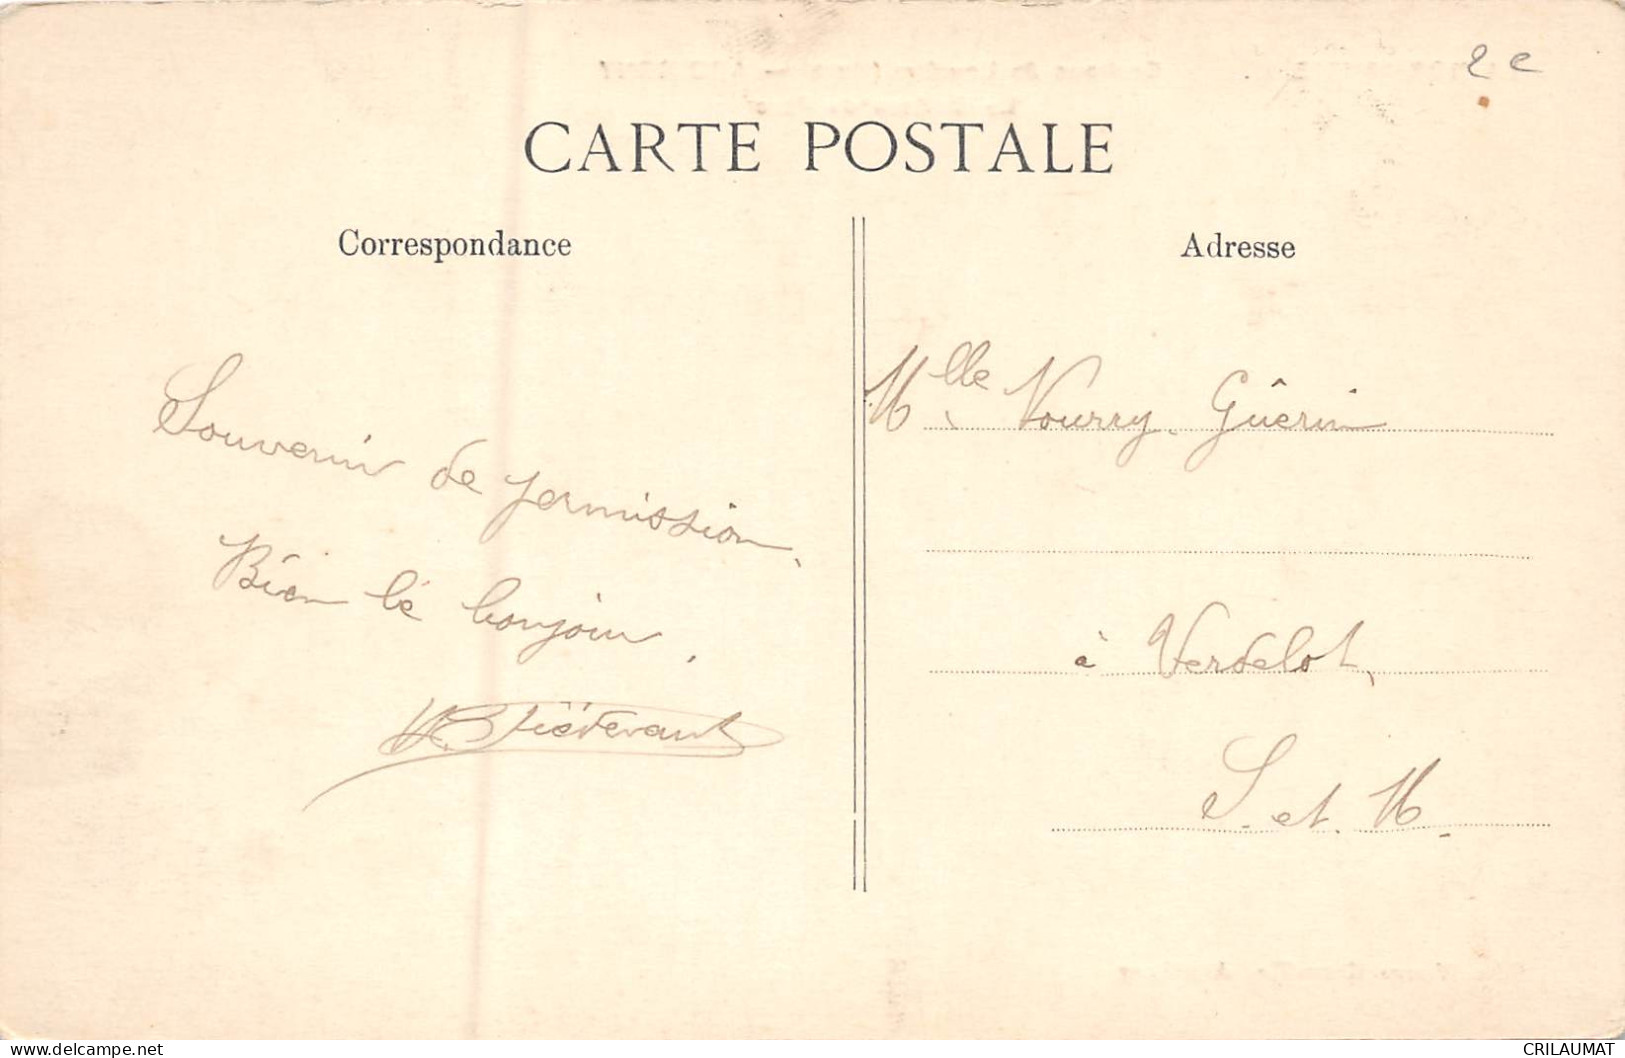 2 e
CARTE POSTALE
Correspondance
Adresse
Souvenir de permission,
Bien le bonjour.
Mlle Nourry-Guêrin
à Verdelot,
S. et. M.
www.delcampe.net
CRILAUMAT